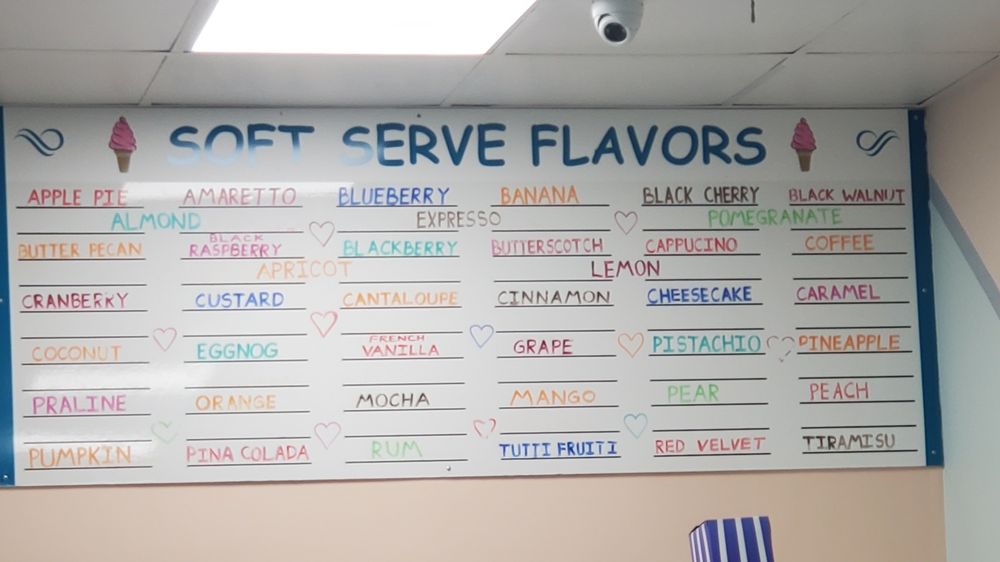 SOFT SERVE FLAVORS
APPLE PIE AMARETTO BLUEBERRY BANANA BLACK CHERRY BLACK WALNUT
ALMOND EXPRESSO POMEGRANATE
BUTTER PECAN BLACK RASPBERRY BLACKBERRY BUTTERSCOTCH CAPPUCINO COFFEE
APRICOT LEMON
CRANBERRY CUSTARD CANTALOUPE CINNAMON CHEESECAKE CARAMEL
COCONUT EGGNOG FRENCH VANILLA GRAPE PISTACHIO PINEAPPLE
PRALINE ORANGE MOCHA MANGO PEAR PEACH
PUMPKIN PINA COLADA RUM TUTTI FRUITI RED VELVET TIRAMISU